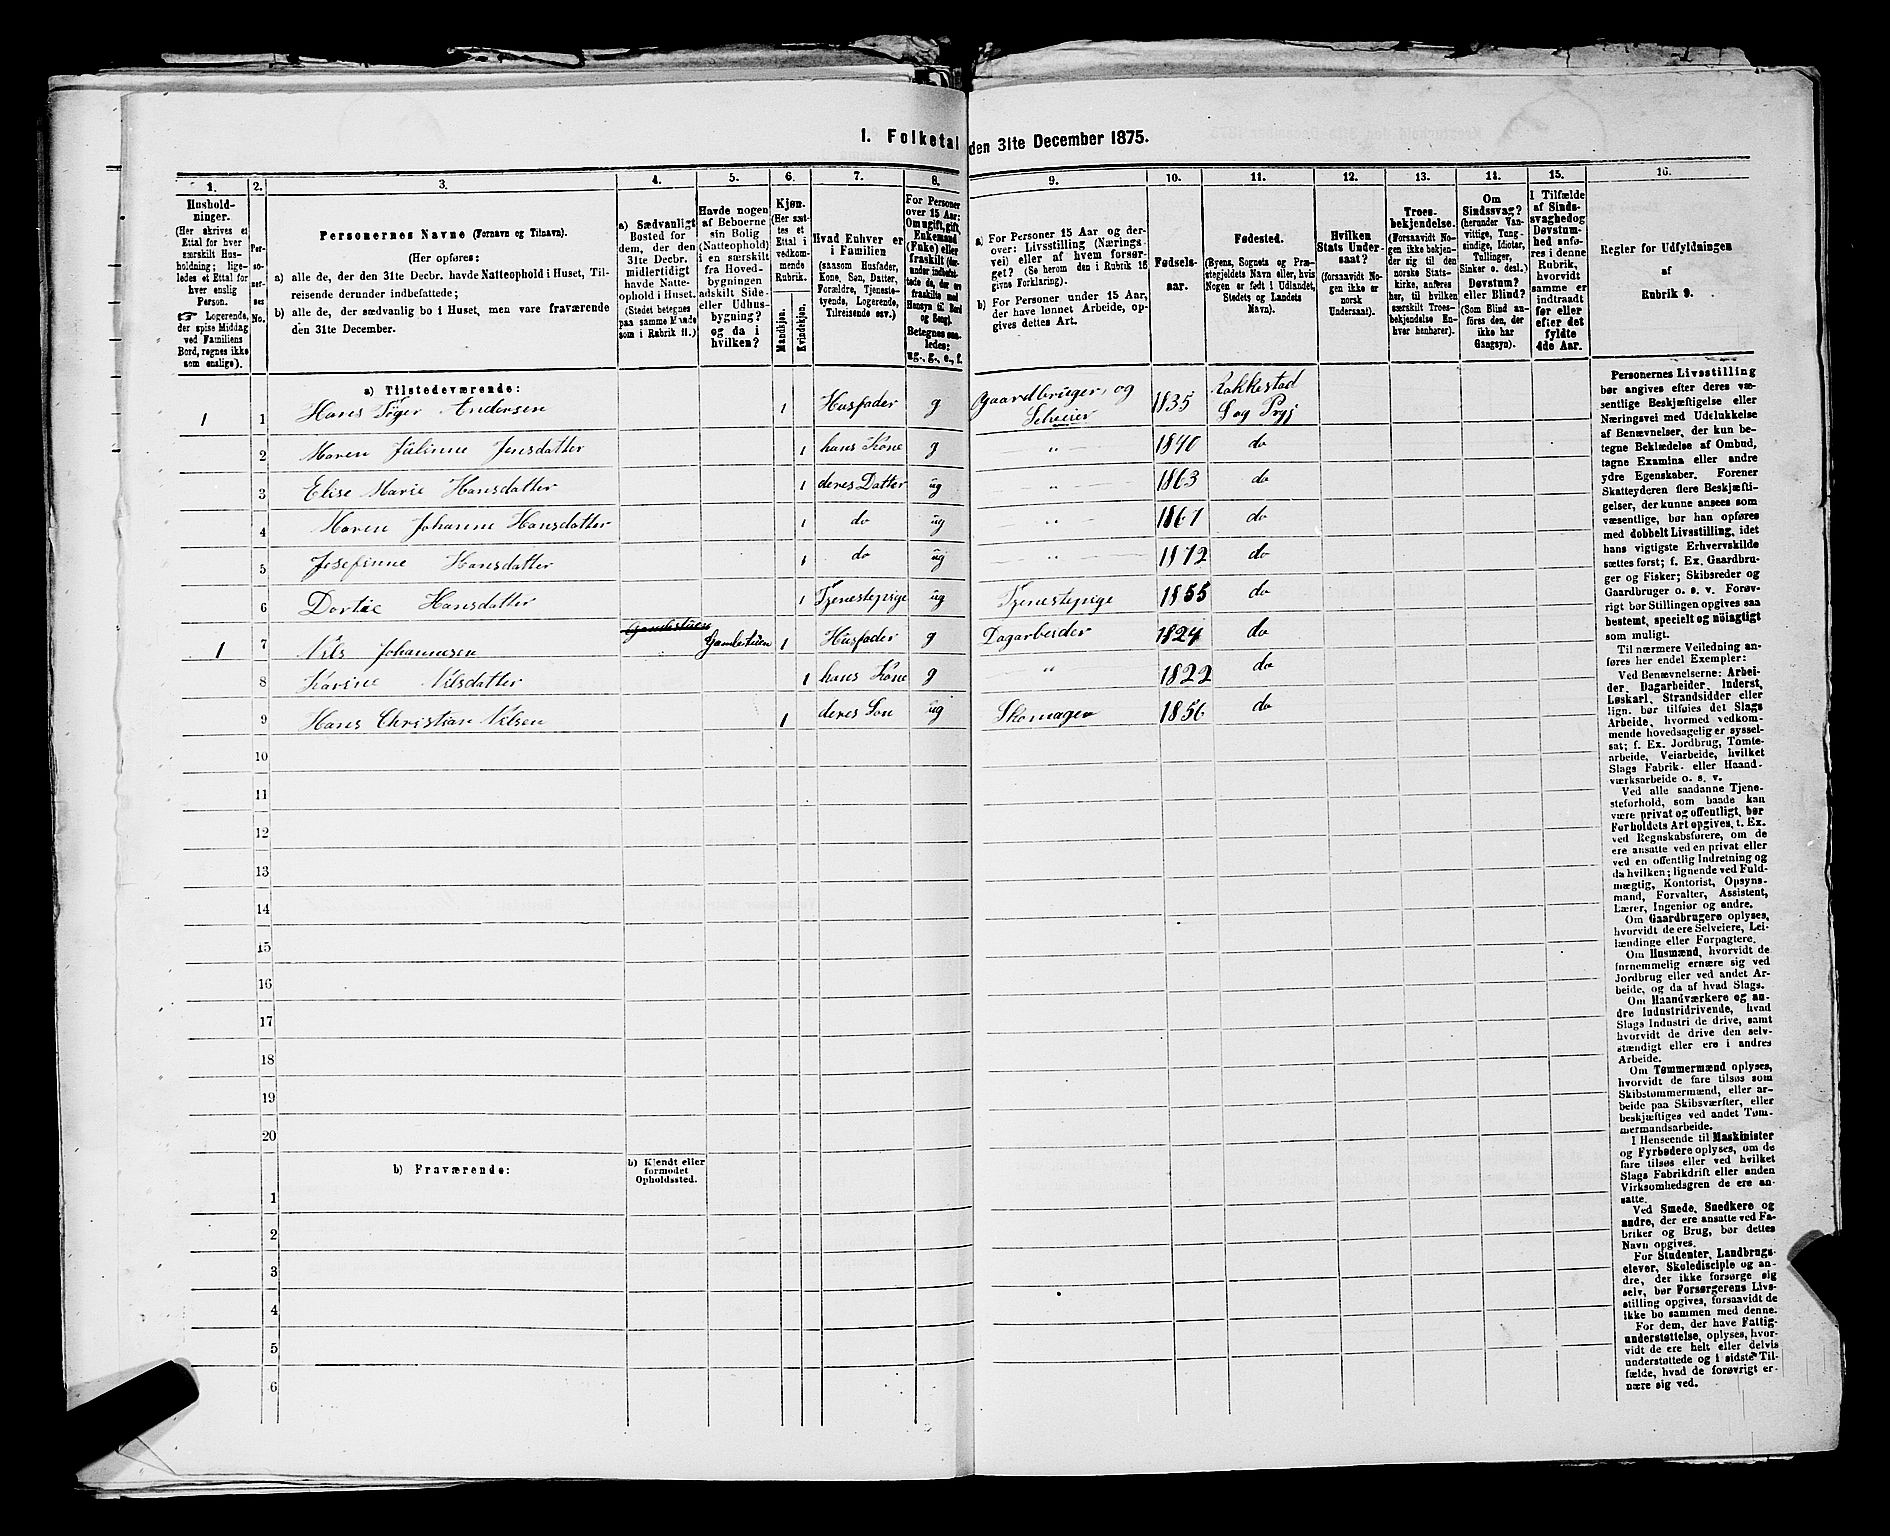 1. Folketal den 31te December 1875.
1. 2. 3. 4. 5. 6. 7. 8. 9. 10. 11. 12. 13. 14. 15. 16.
Hushold-
ninger.
(Her skrives et
Ettal for hver
særskilt Hus-
holdning; lige-
ledes et Ettal for
hver enslig
Person.
Logerende,
der spise Middag
ved Familiens
Bord, regnes ikke
som enslige).
Per-
so-
ner-
nes
No.
Personernes Navne (Fornavn og Tilnavn).
(Her opføres:
a) alle de, der den 31te Decbr. havde Natteophold i Huset, Til-
reisende derunder indbefattede;
b) alle de, der sædvanlig bo i Huset, men vare fraværende
den 31te December.
a) Sædvanligt
Bosted for
dem, der den
31te Decbr.
midlertidigt
havde Natte-
ophold i Huset.
(Stedet betegnes
paa samme Maade
som i Rubrik 11.)
Havde nogen
af Beboerne
sin Bolig
(Natteophold)
i en særskilt
fra Hoved-
bygningen
adskilt Side-
eller Udhus-
bygning?
og da i
hvilken?
Kjøn.
(Her sæt-
tes et
Ettal i
vedkom-
mende
Rubrik.
Mandkjøn.
Kvindekjøn.
Hvad Enhver er
i Familien
(saasom Husfader,
Kone, Søn, Datter,
Forældre, Tjeneste-
tyende, Logerende,
Tilreisende osv.)
For Personer
over 15 Aar:
Om ugift, gift,
Enkemand
(Enke) eller
fraskilt (der-
under indbefat-
tede de, der ere
fraskilte med
Hensyn til Bord
og Seng).
Betegnes saa-
ledes:
ug., g., e., f.
a) For Personer 15 Aar og der-
over: Livsstilling (Nærings-
vei) eller af hvem forsør-
get? (Se herom den i Rubrik 16
givne Forklaring).
b) For Personer under 15 Aar,
der have lønnet Arbeide, op-
gives dettes Art.
Fødsels-
aar.
Fødested.
(Byens, Sognets og Præ-
stegjeldets Navn eller, hvis
Nogen er født i Udlandet,
Stedets og Landets
Navn).
Hvilken
Stats Under-
saat?
(forsaavidt No-
gen ikke er
norsk
Undersaat).
Troes-
bekjendelse.
(Forsaavidt No-
gen ikke bekjen-
der sig til den
norske Stats-
kirke, anføres
her, til hvilken
særskilt Troes-
bekjendelse En-
hver henhører).
Om
Sindssvag?
(herunder Van-
vittige, Tung-
sindige, Idioter,
Tullinger,
Sinker o. desl.)
Døvstum?
eller Blind?
(Som Blind an-
føres den, der
ikke har
Gangsyn).
I Tilfælde
af Sinds-
svaghed og
Døvstum-
hed anfø-
res i denne
Rubrik,
hvorvidt
samme er
indtraadt
før eller
efter det
fyldte
4de Aar.
Regler for Udfyldningen
af
Rubrik 9.
a) Tilstedeværende:
1 1 Hans Tøger Andersen 1 Husfader g Gaardbruger, og Selveier 1835 Rakkestad S og Prgj
2 Maren Juline Jensdatter 1 hans Kone g " 1840 do
3 Elise Marie Hansdatter 1 deres Datter ug " 1863 do
4 Maren Johanne Hansdatter 1 do ug " 1867 do
5 Josefinne Hansdatter 1 do ug " 1872 do
6 Dortie Hansdatter 1 Tjenestepige ug Tjenestepige 1855 do
1 7 Nils Johannesen Gamlestuen Gamlestuen 1 Husfader g Dagarbeider 1824 do
8 Karine Nilsdatter 1 hans Kone g " 1822 do
9 Hans Christian Nilsen 1 deres Søn ug Skomager 1856 do
10
11
12
13
14
15
16
17
18
19
20
b) Fraværende:
b) Kjendt eller
formodet
Opholdssted.
1
2
3
4
5
6
Personernes Livsstilling
bør angives efter deres væ-
sentlige Beskjæftigelse eller
Næringsvei med Udelukkelse
af Benævnelser, der kun be-
tegne Beklædelse af Ombud,
tagne Examina eller andre
ydre Egenskaber. Forener
Skatteyderen flere Beskjæfti-
gelser, der kunne ansees som
væsentlige, bør han opføres
med dobbelt Livsstilling, idet
hans vigtigste Erhvervskilde
sættes først; f. Ex. Gaardbru-
ger og Fisker; Skibsreder og
Gaardbruger o. s. v. Forøv-
rigt bør Stillingen opgives saa
bestemt, specielt og nøiagtigt
som muligt.
Til nærmere Veiledning an-
føres her endel Exempler:
Ved Benævnelserne: Arbei-
der, Dagarbeider, Inderst,
Løskarl, Strandsidder eller
lign. bør tilføies det Slags
Arbeide, hvormed vedkom-
mende hovedsagelig er syssel-
sat; f. Ex. Jordbrug, Tomte-
arbeide, Veiarbeide, hvilket
Slags Fabrik- eller Haand-
værksarbeide o. s. v.
Ved alle saadanne Tjene-
steforhold, som baade kan
være privat og offentligt, bør
Forholdets Art opgives, t. Ex.
ved Regnskabsførere, om de
ere ansatte ved en privat eller
ved en offentlig Indretning og
da hvilken; lignende ved Fuld-
mægtig, Kontorist, Opsyns-
mand, Forvalter, Assistent,
Lærer, Ingeniør og andre.
Om Gaardbrugere oplyses,
hvorvidt de ere Selveiere, Lei-
lændinge eller Forpagtere.
Om Husmænd, hvorvidt de
fornemmelig ernære sig ved
Jordbrug eller ved andet Ar-
beide, og da af hvad Slags.
Om Haandværkere og an-
dre Industridrivende, hvad
Slags Industri de drive, samt
hvorvidt de drive den selv-
stændigt eller ere i andres
Arbeide.
Om Tømmermænd oplyses,
hvorvidt de fare tilsøs som
Skibstømmermænd, eller ar-
beide paa Skibsværfter, eller
beskjæftiges ved andet Tøm-
mermandsarbeide.
I Henseende til Maskinister
og Fyrbødere oplyses, om de
fare tilsøs eller ved hvilket
Slags Fabrikdrift eller anden
Virksomhedsgren de ere an-
satte.
Ved Smede, Snedkere og
andre, der ere ansatte ved Fa-
briker og Brug, bør dettes
Navn opgives.
For Studenter, Landbrugs-
elever, Skoledisciple og an-
dre, der ikke forsørge sig
selv, bør Forsørgerens Livs-
stilling opgives, forsaavidt de
ikke bo sammen med denne.
For dem, der have Fattig-
understøttelse, oplyses, hvor-
vidt de ere helt eller delvis
understøttede og i sidste Til-
fælde, hvad de forøvrigt er-
nære sig ved.